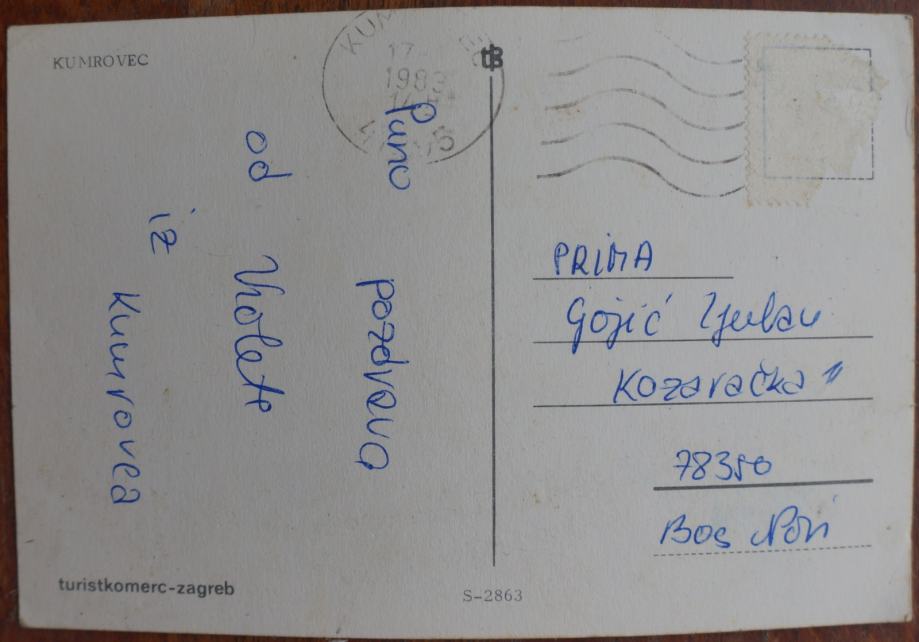 KUMROVEC
17
1983
Puno pozdrava
od Violete
iz Kumrovca
PRIMA
Gojić Ljuban
Kozaračka
78350
Bos Novi
turistkomerc-zagreb
S-2863